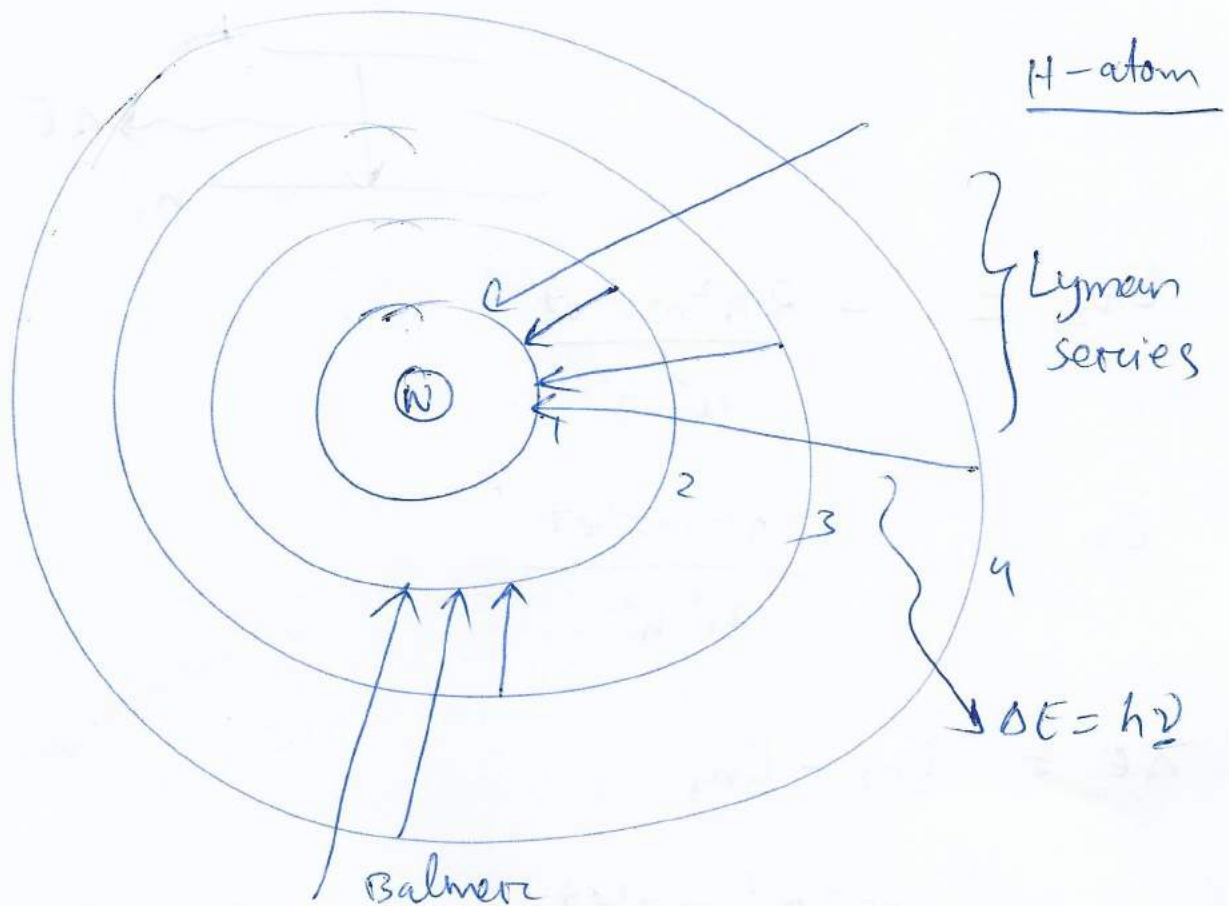 H-atom
Lyman
sercies
N
1
2
3
4
ΔE = hν
Balmerc